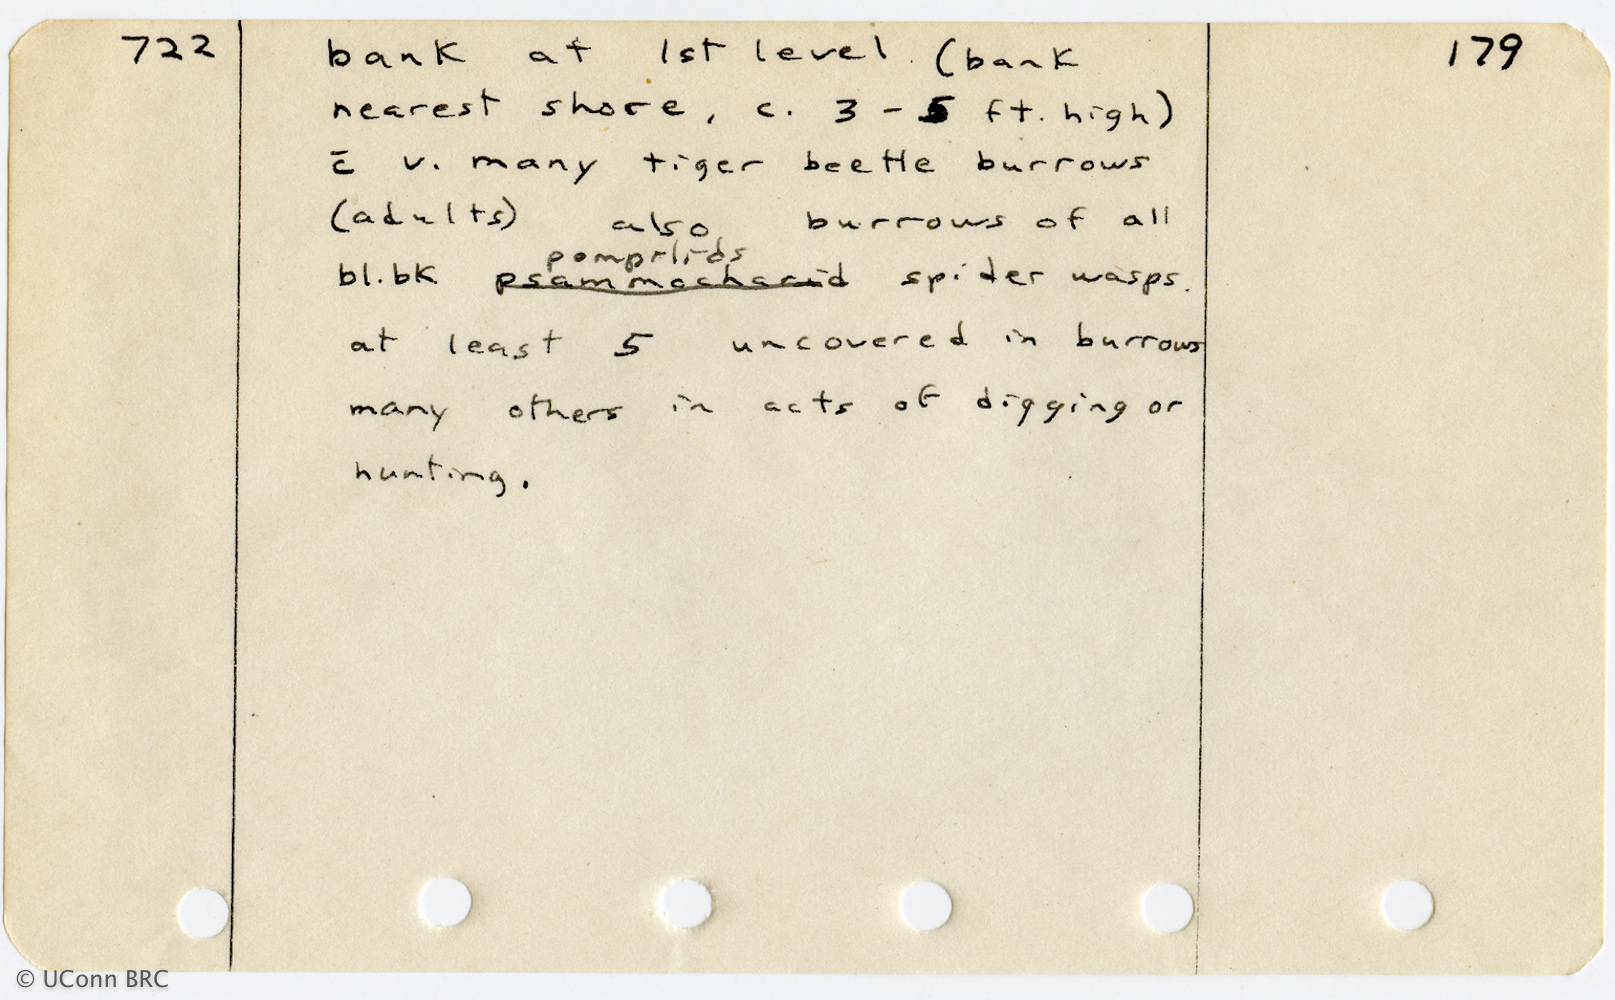 722
179
bank at 1st level. (bank
nearest shore, c. 3-5 ft. high)
c̄ v. many tiger beetle burrows
(adults) also burrows of all
pompilids
bl.bk psammocharid spider wasps.
at least 5 uncovered in burrows
many others in acts of digging or
hunting.
© UConn BRC